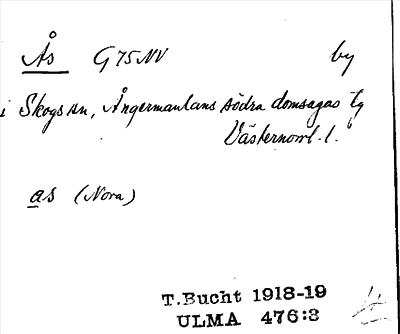 Ås G75NV by
i Skogs sn, Ångermanlans södra domsagas tg
Västernorrl. l.
as (Nora)
T.Bucht 1918-19
ULMA 476:3